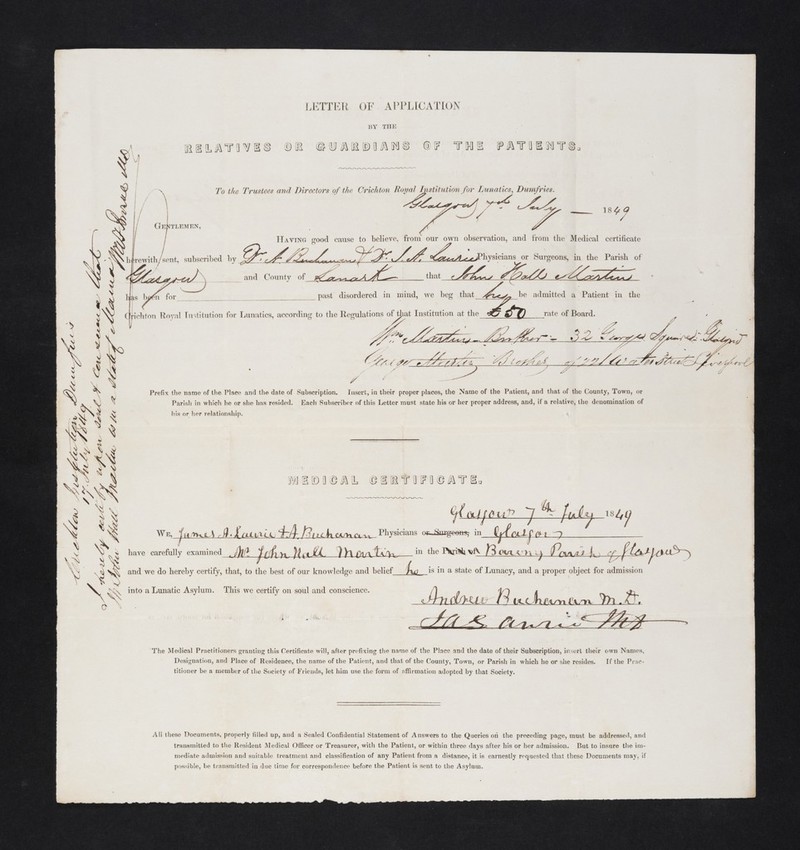 LETTER OF APPLICATION
BY THE
RELATIVES OR GUARDIANS OF THE PATIENTS.
To the Trustees and Directors of the Crichton Royal Institution for Lunatics, Dumfries.
Glasgow 7th July 1849
GENTLEMEN,
HAVING good cause to believe, from our own observation, and from the Medical certificate
herewith sent, subscribed by Dr. A. Buchanan & Dr. J. A. Laurie Physicians or Surgeons, in the Parish of
Glasgow and County of Lanark that John Hall Martin
has been for past disordered in mind, we beg that he be admitted a Patient in the
Crichton Royal Institution for Lunatics, according to the Regulations of that Institution at the £50 rate of Board.
Wm Martin - Brother - 32 Georges Square Glasgow
George Brother of 22 Water Street Liverpool
Prefix the name of the Place and the date of Subscription. Insert, in their proper places, the Name of the Patient, and that of the County, Town, or
Parish in which he or she has resided. Each Subscriber of this Letter must state his or her proper address, and, if a relative, the denomination of
his or her relationship.
MEDICAL CERTIFICATE.
Glasgow 7th July 1849
WE, James A. Laurie & A. Buchanan Physicians or Surgeons, in Glasgow
have carefully examined Mr John Hall Martin in the Parish of Barony Parish of Glasgow
and we do hereby certify, that, to the best of our knowledge and belief he is in a state of Lunacy, and a proper object for admission
into a Lunatic Asylum. This we certify on soul and conscience.
Andrew Buchanan M.D.
J A Laurie MD
The Medical Practitioners granting this Certificate will, after prefixing the name of the Place and the date of their Subscription, insert their own Names,
Designation, and Place of Residence, the name of the Patient, and that of the County, Town, or Parish in which he or she resides. If the Prac-
titioner be a member of the Society of Friends, let him use the form of affirmation adopted by that Society.
All these Documents, properly filled up, and a Sealed Confidential Statement of Answers to the Queries on the preceding page, must be addressed, and
transmitted to the Resident Medical Officer or Treasurer, with the Patient, or within three days after his or her admission. But to insure the im-
mediate admission and suitable treatment and classification of any Patient from a distance, it is earnestly requested that these Documents may, if
possible, be transmitted in due time for correspondence before the Patient is sent to the Asylum.
Crichton Institution Dumfries
17 July 1849
I hereby certify upon soul & conscience that
Mr John Hall Martin is in a state of Mania